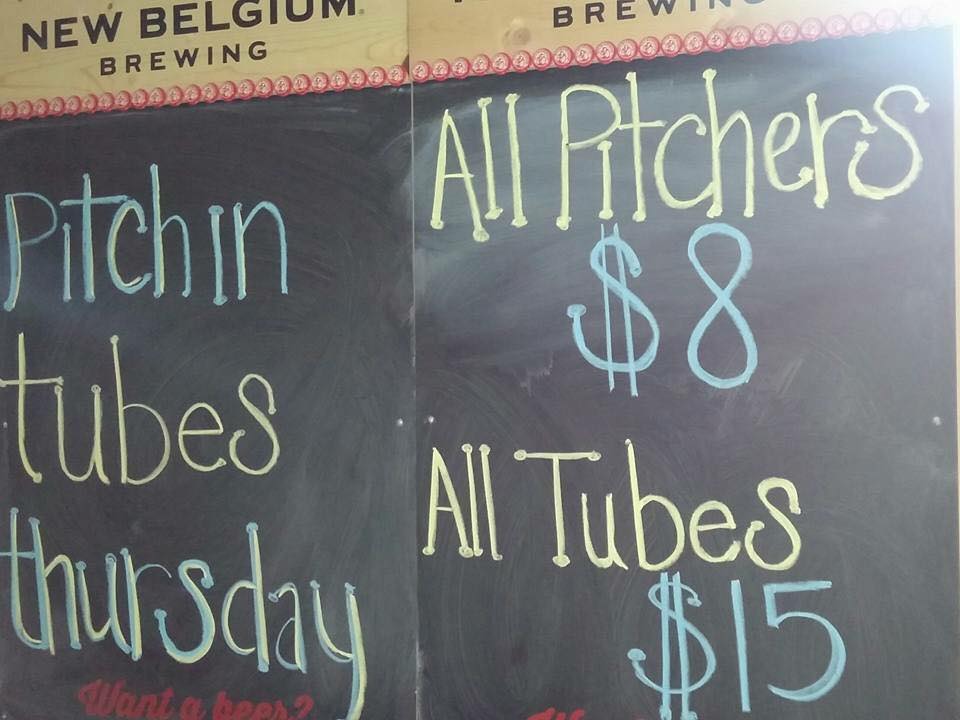 NEW BELGIUM
BREWING
Pitchin
tubes
thursday
Want a beer?
BREWING
All Pitchers
$8
All Tubes
$15